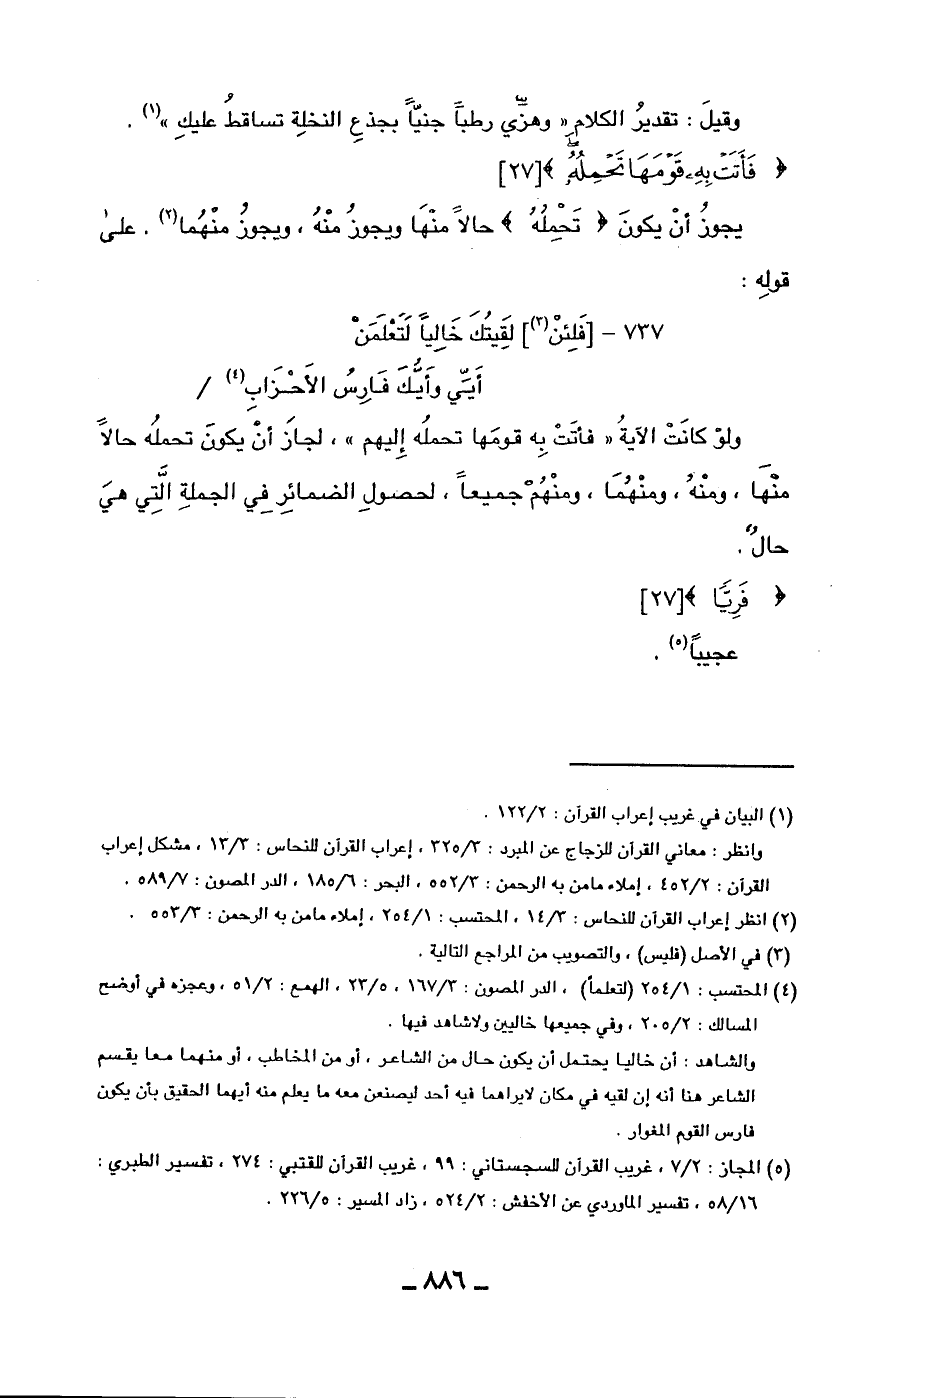 وقيلَ : تقديرُ الكلامِ « وهزّي رطباً جنيّاً بجذعِ النخلةِ تساقطُ عليكِ »(١) .
﴿ فَأَتَتْ بِهِ قَوْمَهَا تَحْمِلُهُ ﴾[٢٧]
يجوزُ أنْ يكونَ ﴿ تَحْمِلُهُ ﴾ حالاً منْها ويجوزُ منْهُ ، ويجوزُ منْهُما(٢) . علىٰ
قولِهِ :
٧٣٧ – [فَلِئنْ(٣)] لقِيتُكَ خَالِياً لَتَعْلَمَنْ
أَيـِّي وأَيـُّكَ فَـارِسُ الأَحْـزَابِ(٤) /
ولوْ كانَتْ الآيةُ « فأتَتْ بِهِ قومَها تحملُه إِليهم » ، لجازَ أنْ يكونَ تحملُه حالاً
منْها ، ومنْهُ ، ومنْهُمَا ، ومنْهُمْ جميعاً ، لحصولِ الضمائرِ فِي الجملةِ الَّتِي هيَ
حالٌ .
﴿ فَرِيًّا ﴾[٢٧]
عجيباً(٥) .
(١) البيان في غريب إعراب القرآن : ١٢٢/٢ .
وانظر : معاني القرآن للزجاج عن المبرد : ٣٢٥/٣ ، إعراب القرآن للنحاس : ١٣/٣ ، مشكل إعراب
القرآن : ٤٥٢/٢ ، إملاء مامن به الرحمن : ٥٥٢/٣ ، البحر : ١٨٥/٦ ، الدر المصون : ٥٨٩/٧ .
(٢) انظر إعراب القرآن للنحاس : ١٤/٣ ، المحتسب : ٢٥٤/١ ، إملاء مامن به الرحمن : ٥٥٣/٣ .
(٣) في الأصل (فليس) ، والتصويب من المراجع التالية .
(٤) المحتسب : ٢٥٤/١ (لتعلماً) ، الدر المصون : ١٦٧/٣ ، ٢٣/٥ ، الهمع : ٥١/٢ ، وعجزه في أوضح
المسالك : ٢٠٥/٢ ، وفي جميعها خاليين ولاشاهد فيها .
والشاهد : أن خاليا يحتمل أن يكون حال من الشاعر ، أو من المخاطب ، أو منهما معا يقسم
الشاعر هنا أنه إن لقيه في مكان لايراهما فيه أحد ليصنعن معه ما يعلم منه أيهما الحقيق بأن يكون
فارس القوم المغوار .
(٥) المجاز : ٧/٢ ، غريب القرآن للسجستاني : ٩٩ ، غريب القرآن للقتبي : ٢٧٤ ، تفسير الطبري :
٥٨/١٦ ، تفسير الماوردي عن الأخفش : ٥٢٤/٢ ، زاد المسير : ٢٢٦/٥ .
– ٨٨٦ –